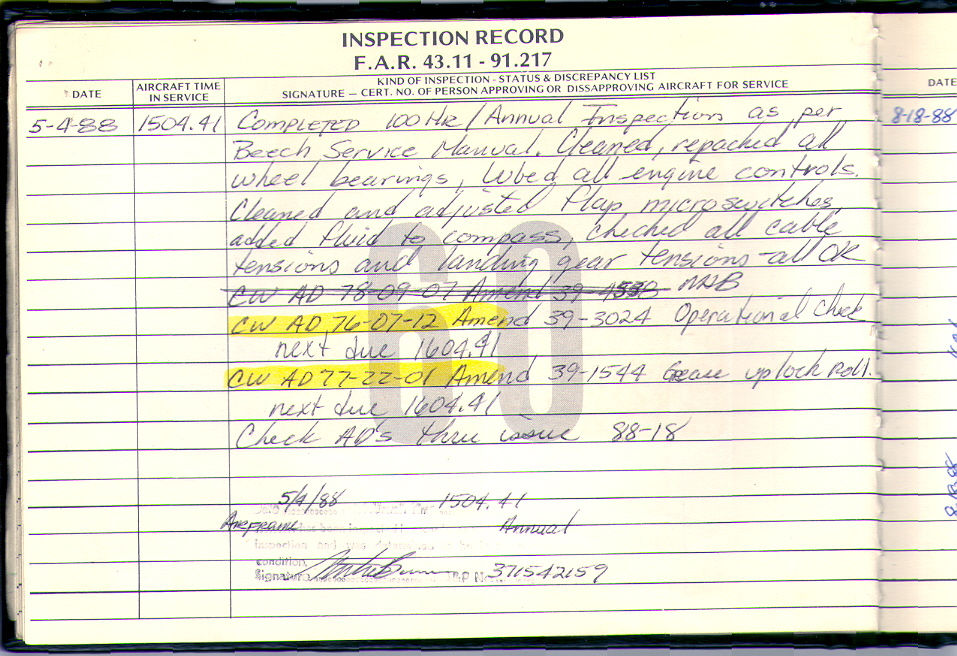 INSPECTION RECORD
F.A.R. 43.11 - 91.217
DATE
AIRCRAFT TIME IN SERVICE
KIND OF INSPECTION - STATUS & DISCREPANCY LIST
SIGNATURE — CERT. NO. OF PERSON APPROVING OR DISSAPPROVING AIRCRAFT FOR SERVICE
DATE
5-4-88 1504.41 Completed 100 Hr / Annual Inspection as per
8-18-88
Beech Service Manual. Cleaned, repacked all
wheel bearings, lubed all engine controls.
Cleaned and adjusted flap microswitches,
added fluid to compass, checked all cable
tensions and landing gear tensions - all OK
CW AD 78-09-07 Amend 39-
CW AD 76-07-12 Amend 39-3024 Operational Check
next due 1604.41
CW AD 77-22-01 Amend 39-1544 Grease uplock Roll.
next due 1604.41
Check AD's thru issue 88-18
60
5/4/88 1504.41
Airframe Annual
inspection and was
condition.
Signature 371542159